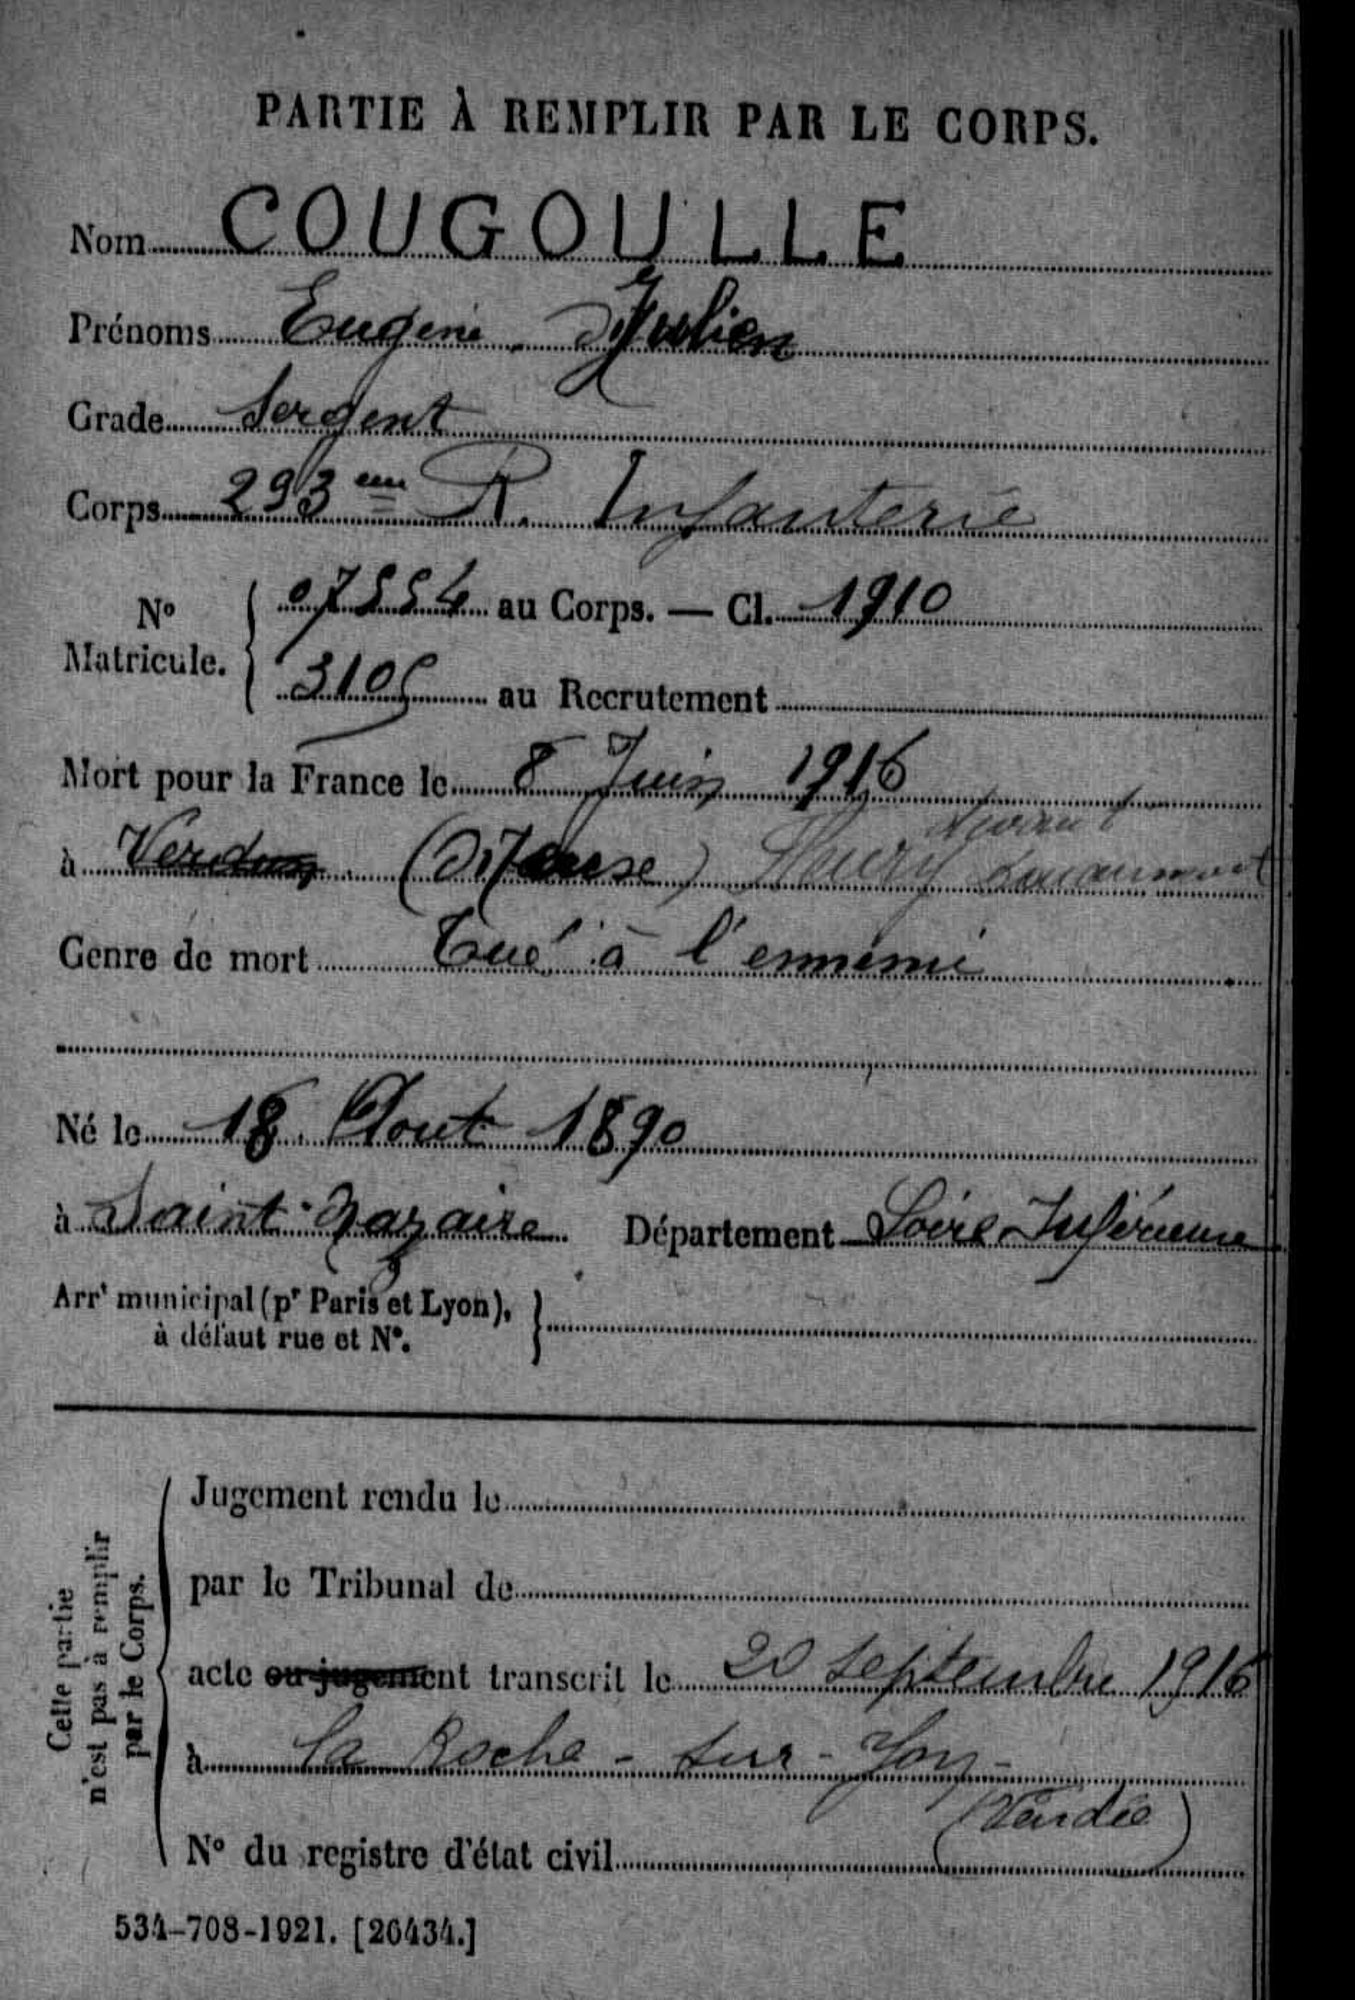 PARTIE À REMPLIR PAR LE CORPS.
Nom COUGOULLE
Prénoms Eugène Julien
Grade Sergent
Corps 293 em R. Infanterie
N° Matricule. { 07554 au Corps. — Cl. 1910
3105 au Recrutement
Mort pour la France le 8 Juin 1916
devant
à Verdun (Meuse) Fleury Douaumont
Genre de mort Tué à l'ennemi
Né le 18 Aout 1890
à Saint-Nazaire Département Loire Inférieure
Arrt municipal (pr Paris et Lyon),
à défaut rue et N°.
Cette partie
n'est pas à remplir
par le Corps.
Jugement rendu le
par le Tribunal de
acte ou jugement transcrit le 20 septembre 1916
à la Roche-sur-Yon-
(Vendée)
N° du registre d'état civil
534-708-1921. [26434.]